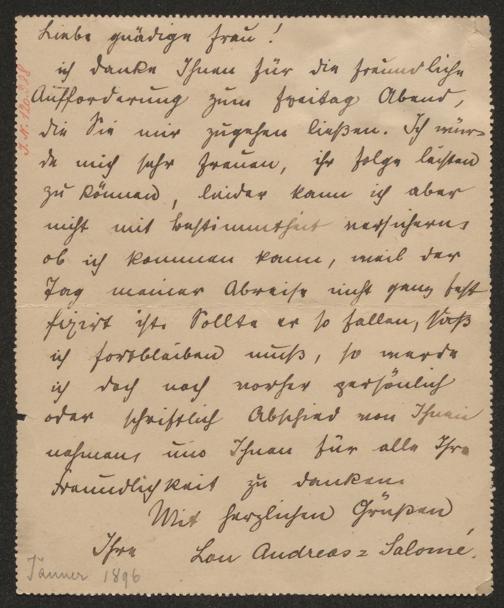 Liebe gnädige Frau!
ich danke Ihnen für die freundliche
Aufforderung zum Freitag Abend,
die Sie mir zugehen ließen. Ich wür-
de mich sehr freuen, ihr folge leisten
zu können, leider kann ich aber
nicht mit Bestimmtheit versichern,
ob ich kommen kann, weil der
Tag meiner Abreise nicht ganz fest
fixirt ist. Sollte er so fallen, daß
ich fortbleiben muß, so werde
ich doch noch vorher persönlich
oder schriftlich Abschied von Ihnen
nehmen, und Ihnen für alle Ihre
Freundlichkeit zu danken.
Mit herzlichen Grüßen
Ihre Lou Andreas=Salomé.
Jänner 1896